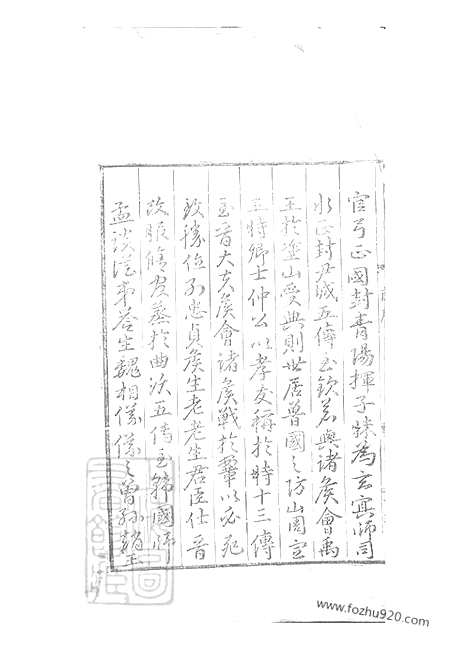 官弓正國封青陽揮子昧為玄冥師司
水正封尹城五傳至欽若與諸侯會禹
王於塗山受典則世居晉國之防山周宣
王時卿士仲公以孝友稱於時十三傳
至晉大夫侯會諸侯戰於鞏以必死
致勝位列忠貞侯生老老生君臣仕晉
改服脩官烝於曲沃五傳至韓國師
孟談從弟蒼生魏相儀儀之曾孫趙王
www.fozhu920.com